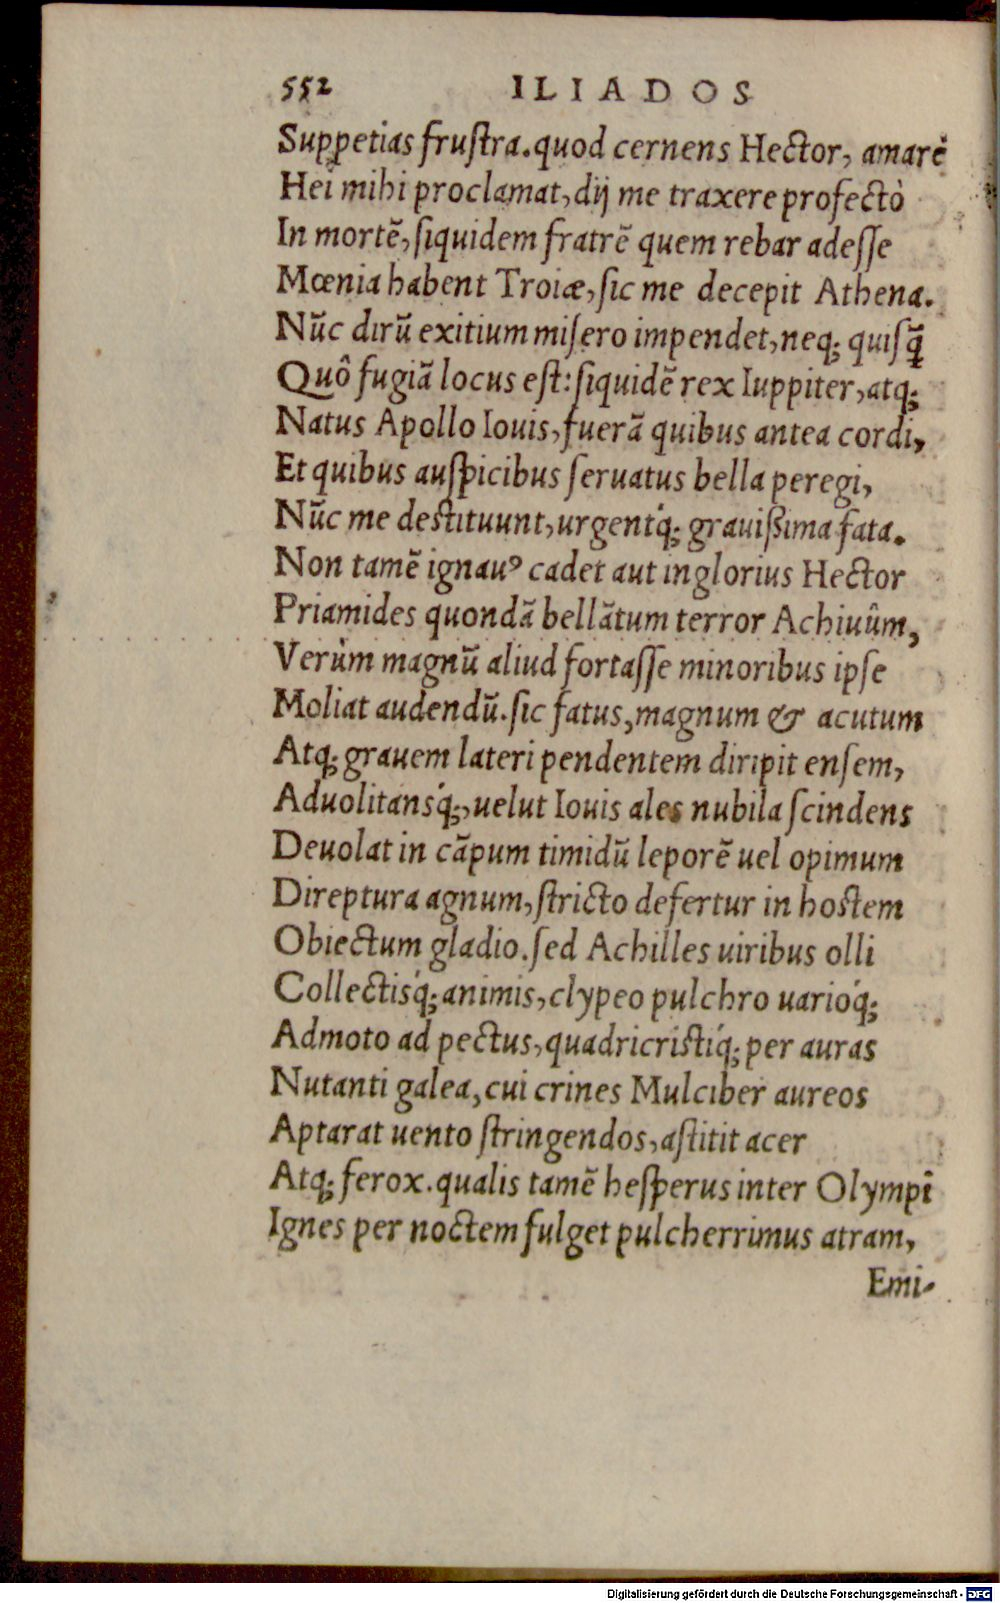 552 ILIADOS
Suppetias fruſtra. quod cernens Hector, amarè
Hei mihi proclamat, dij me traxere profectò
In mortẽ, ſiquidem fratrẽ quem rebar adeſſe
Mœnia habent Troiæ, ſic me decepit Athena.
Nũc dirũ exitium miſero impendet, neq; quiſq̃
Quô fugiã locus eſt: ſiquidẽ rex Iuppiter, atq;
Natus Apollo Iouis, fuerã quibus antea cordi,
Et quibus auſpicibus ſeruatus bella peregi,
Nũc me deſtituunt, urgentq́; grauißima fata.
Non tamẽ ignauꝰ cadet aut inglorius Hector
Priamides quondã bellãtum terror Achiuûm,
Verùm magnũ aliud fortaſſe minoribus ipſe
Moliat audendũ. ſic fatus, magnum & acutum
Atq; grauem lateri pendentem diripit enſem,
Aduolitansq́;, uelut Iouis ales nubila ſcindens
Deuolat in cãpum timidũ leporẽ uel opimum
Direptura agnum, ſtricto defertur in hoſtem
Obiectum gladio. ſed Achilles uiribus olli
Collectisq́; animis, clypeo pulchro uarioq́;
Admoto ad pectus, quadricriſtiq́; per auras
Nutanti galea, cui crines Mulciber aureos
Aptarat uento ſtringendos, aſtitit acer
Atq; ferox. qualis tamẽ heſperus inter Olympi
Ignes per noctem fulget pulcherrimus atram,
Emi-
Digitalisierung gefördert durch die Deutsche Forschungsgemeinschaft - DFG